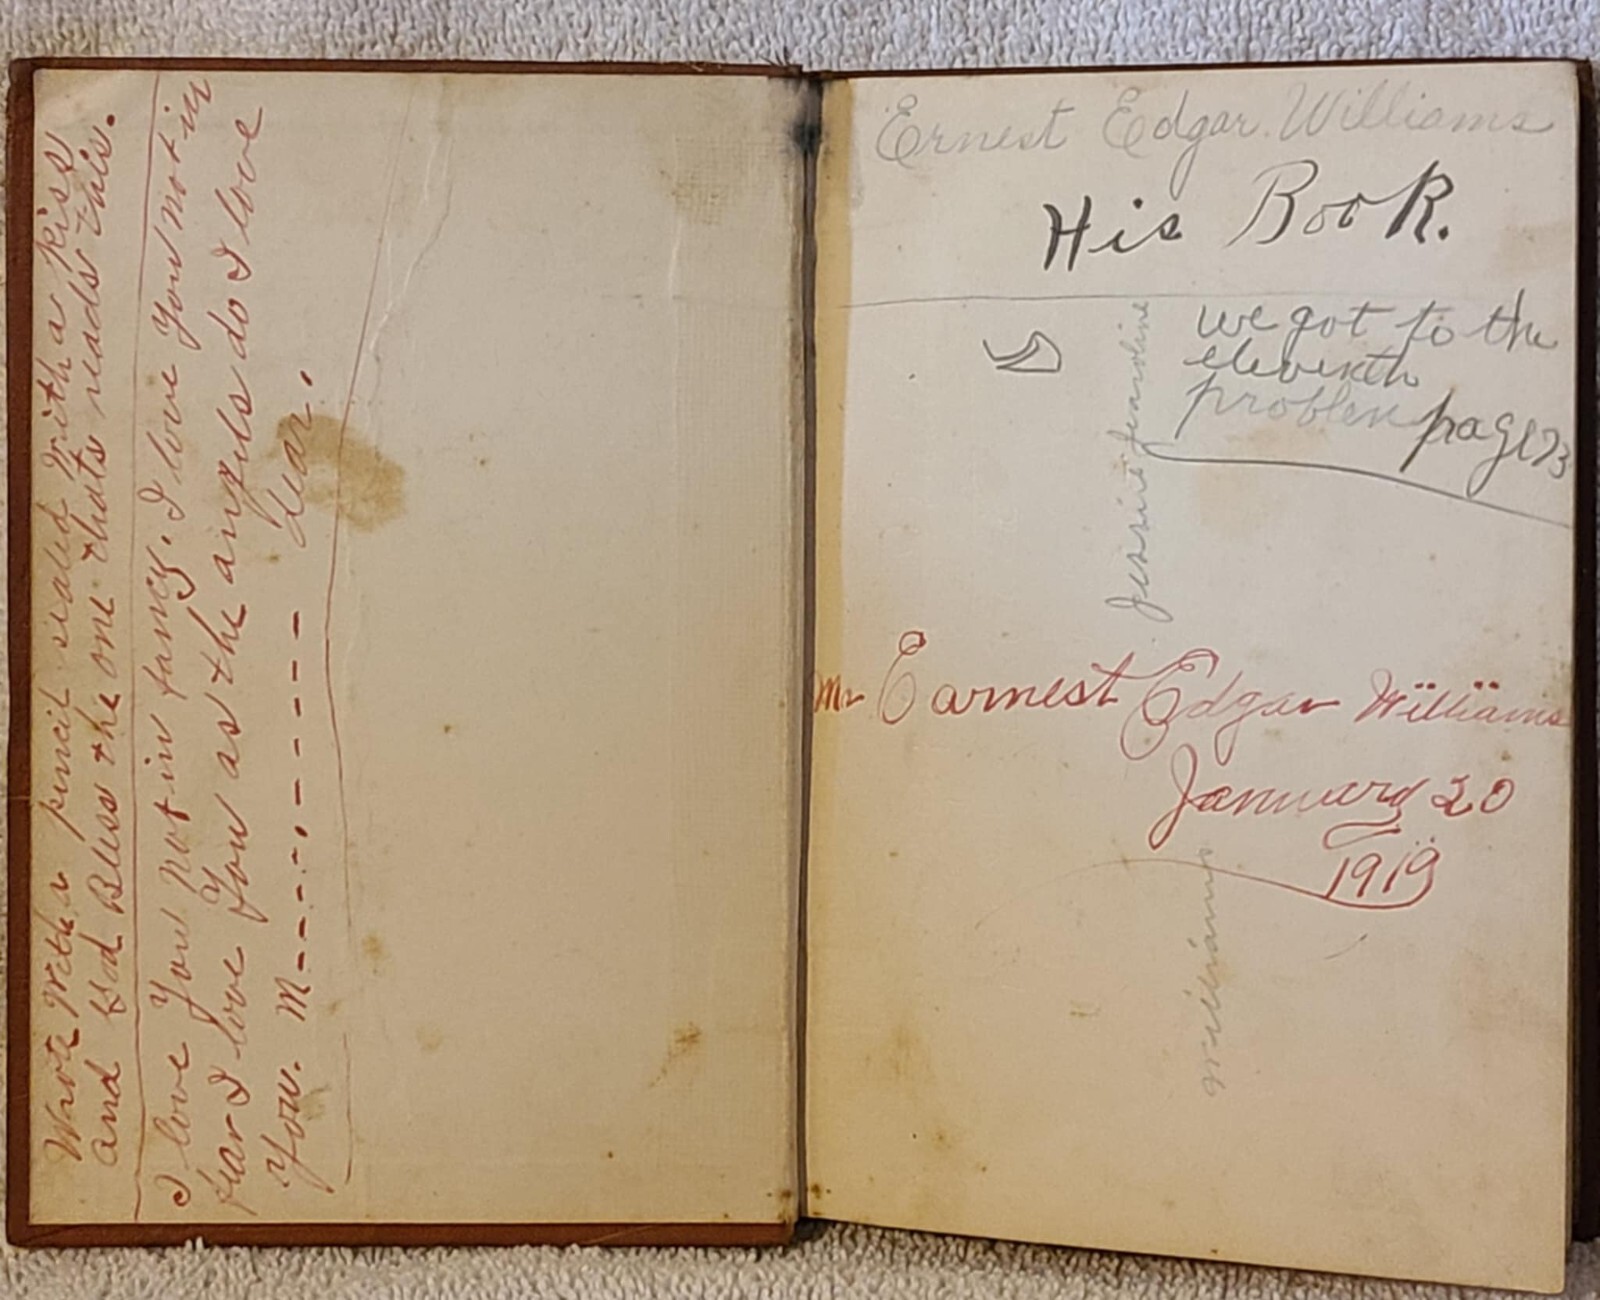 Wrote With a pencil sealed With a kiss
and God Bless the one thats reads this.
I love You not in fancy. I love You not in
fear I love You as the angels do I love
You. M----.------ dear.
Ernest Edgar Williams
His Book.
we got to the
eleventh
problem page 73
Jessie Jearoline
Mr Earnest Edgar Williams
January 20
1919
Williams